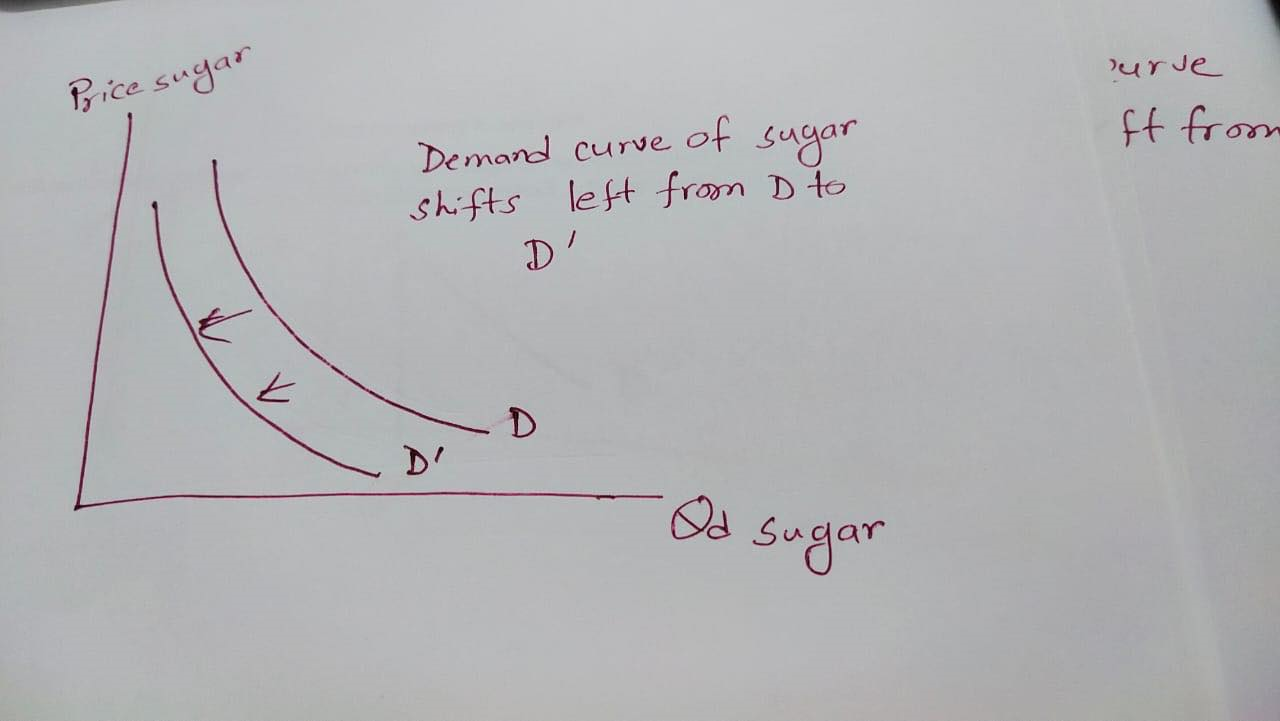 Price sugar
Demand curve of sugar
shifts left from D to
D'
D
D'
Qd sugar
urve
ft from